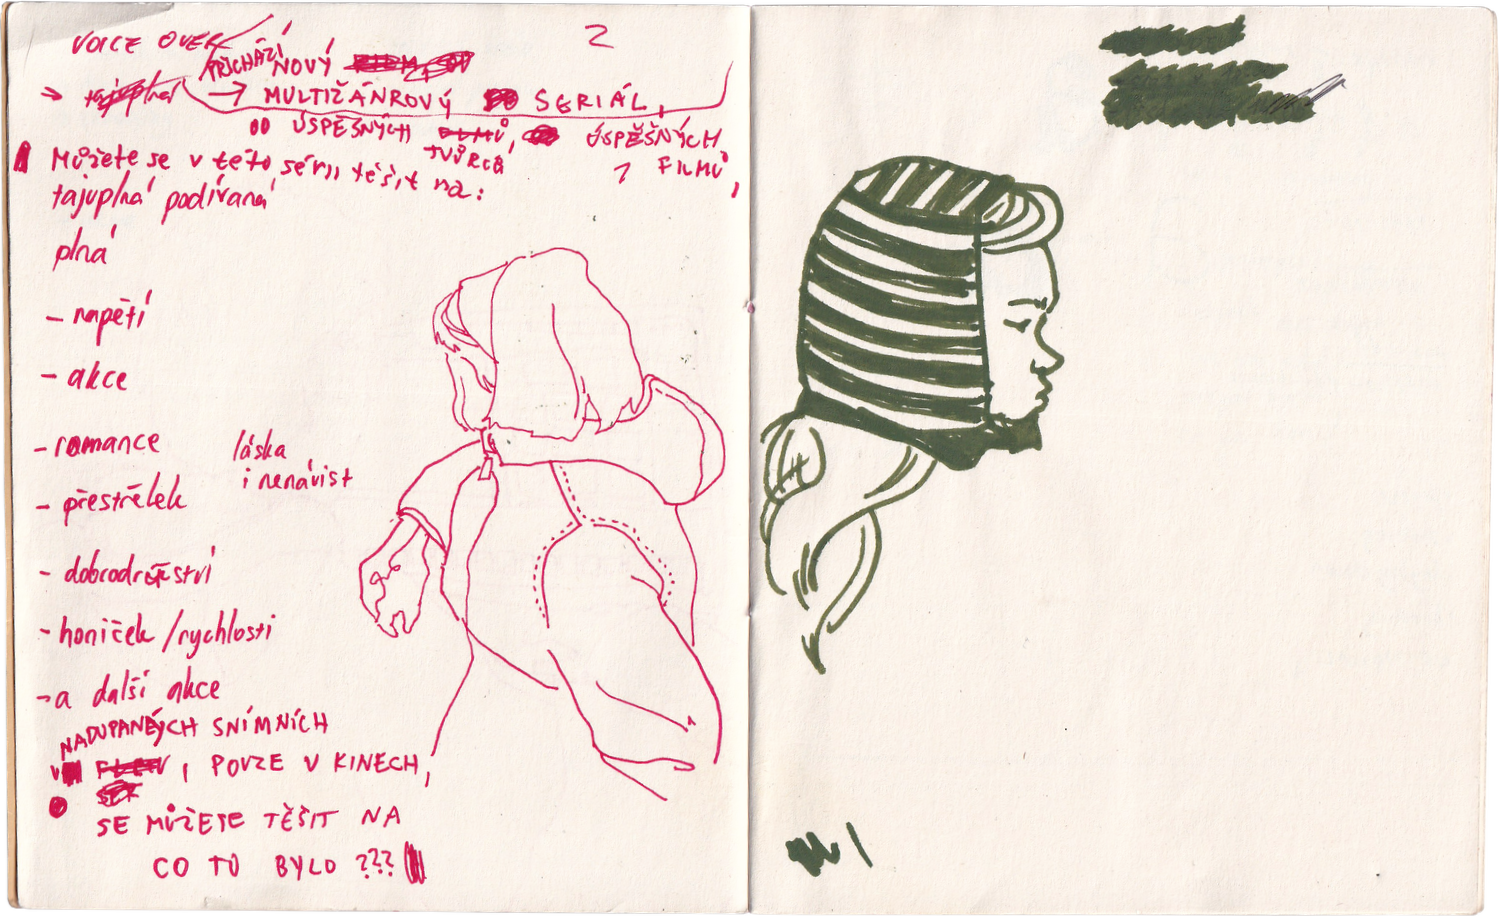 VOICE OVER
2
PŘICHÁZÍ NOVÝ
→ tajuplná → MULTIŽÁNROVÝ SERIÁL,
OD ÚSPĚŠNÝCH TVŮRCŮ, ÚSPĚŠNÝCH FILMŮ,
Můžete se v této sérii těšit na:
tajuplná podívaná
plná
- napětí
- akce
- romance
láska
i nenávist
- přestřelek
- dobrodružství
- honiček / rychlosti
- a další akce
NADUPANÝCH SNÍMNÍCH
, POUZE V KINECH,
SE MŮŽETE TĚŠIT NA
CO TO BYLO ???